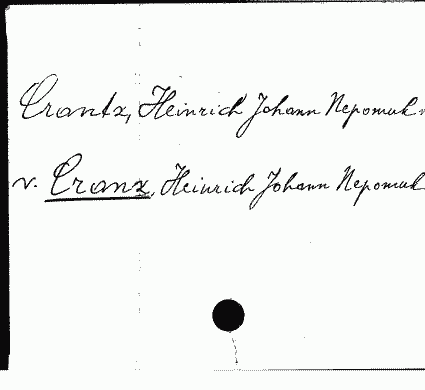 Crantz, Heinrich Johann Nepomuk
v. Cranz, Heinrich Johann Nepomuk